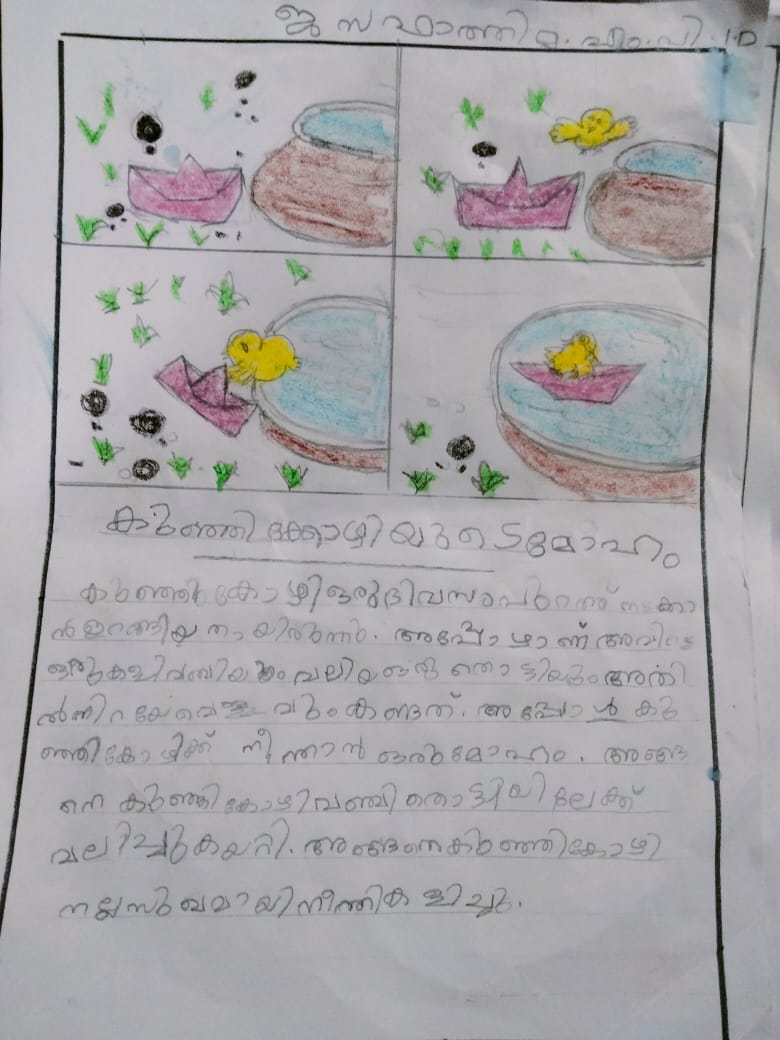 ജസ ഫാത്തിമ. എം.വി. 1.D
കുഞ്ഞി ക്കോഴിയുടെ മോഹം
കുഞ്ഞി കോഴി ഒരു ദിവസം പുറത്ത് നടക്കാ
ൻ ഇറങ്ങിയതായിരുന്നു. അപ്പോഴാണ് അവിടെ
ഒരു കളി വഞ്ചിയും വലിയ ഒരു തൊട്ടിയും അതി
ൽ നിറയേ വെള്ളവും കണ്ടത്. അപ്പോൾ കു
ഞ്ഞി കോഴിക്ക് നീന്താൻ ഒരു മോഹം. അങ്ങ
നെ കുഞ്ഞി കോഴി വഞ്ചി തൊട്ടിയിലേക്ക്
വലിച്ചു കയറ്റി. അങ്ങനെ കുഞ്ഞി കോഴി
നല്ല സുഖമായി നീന്തി കളിച്ചു.